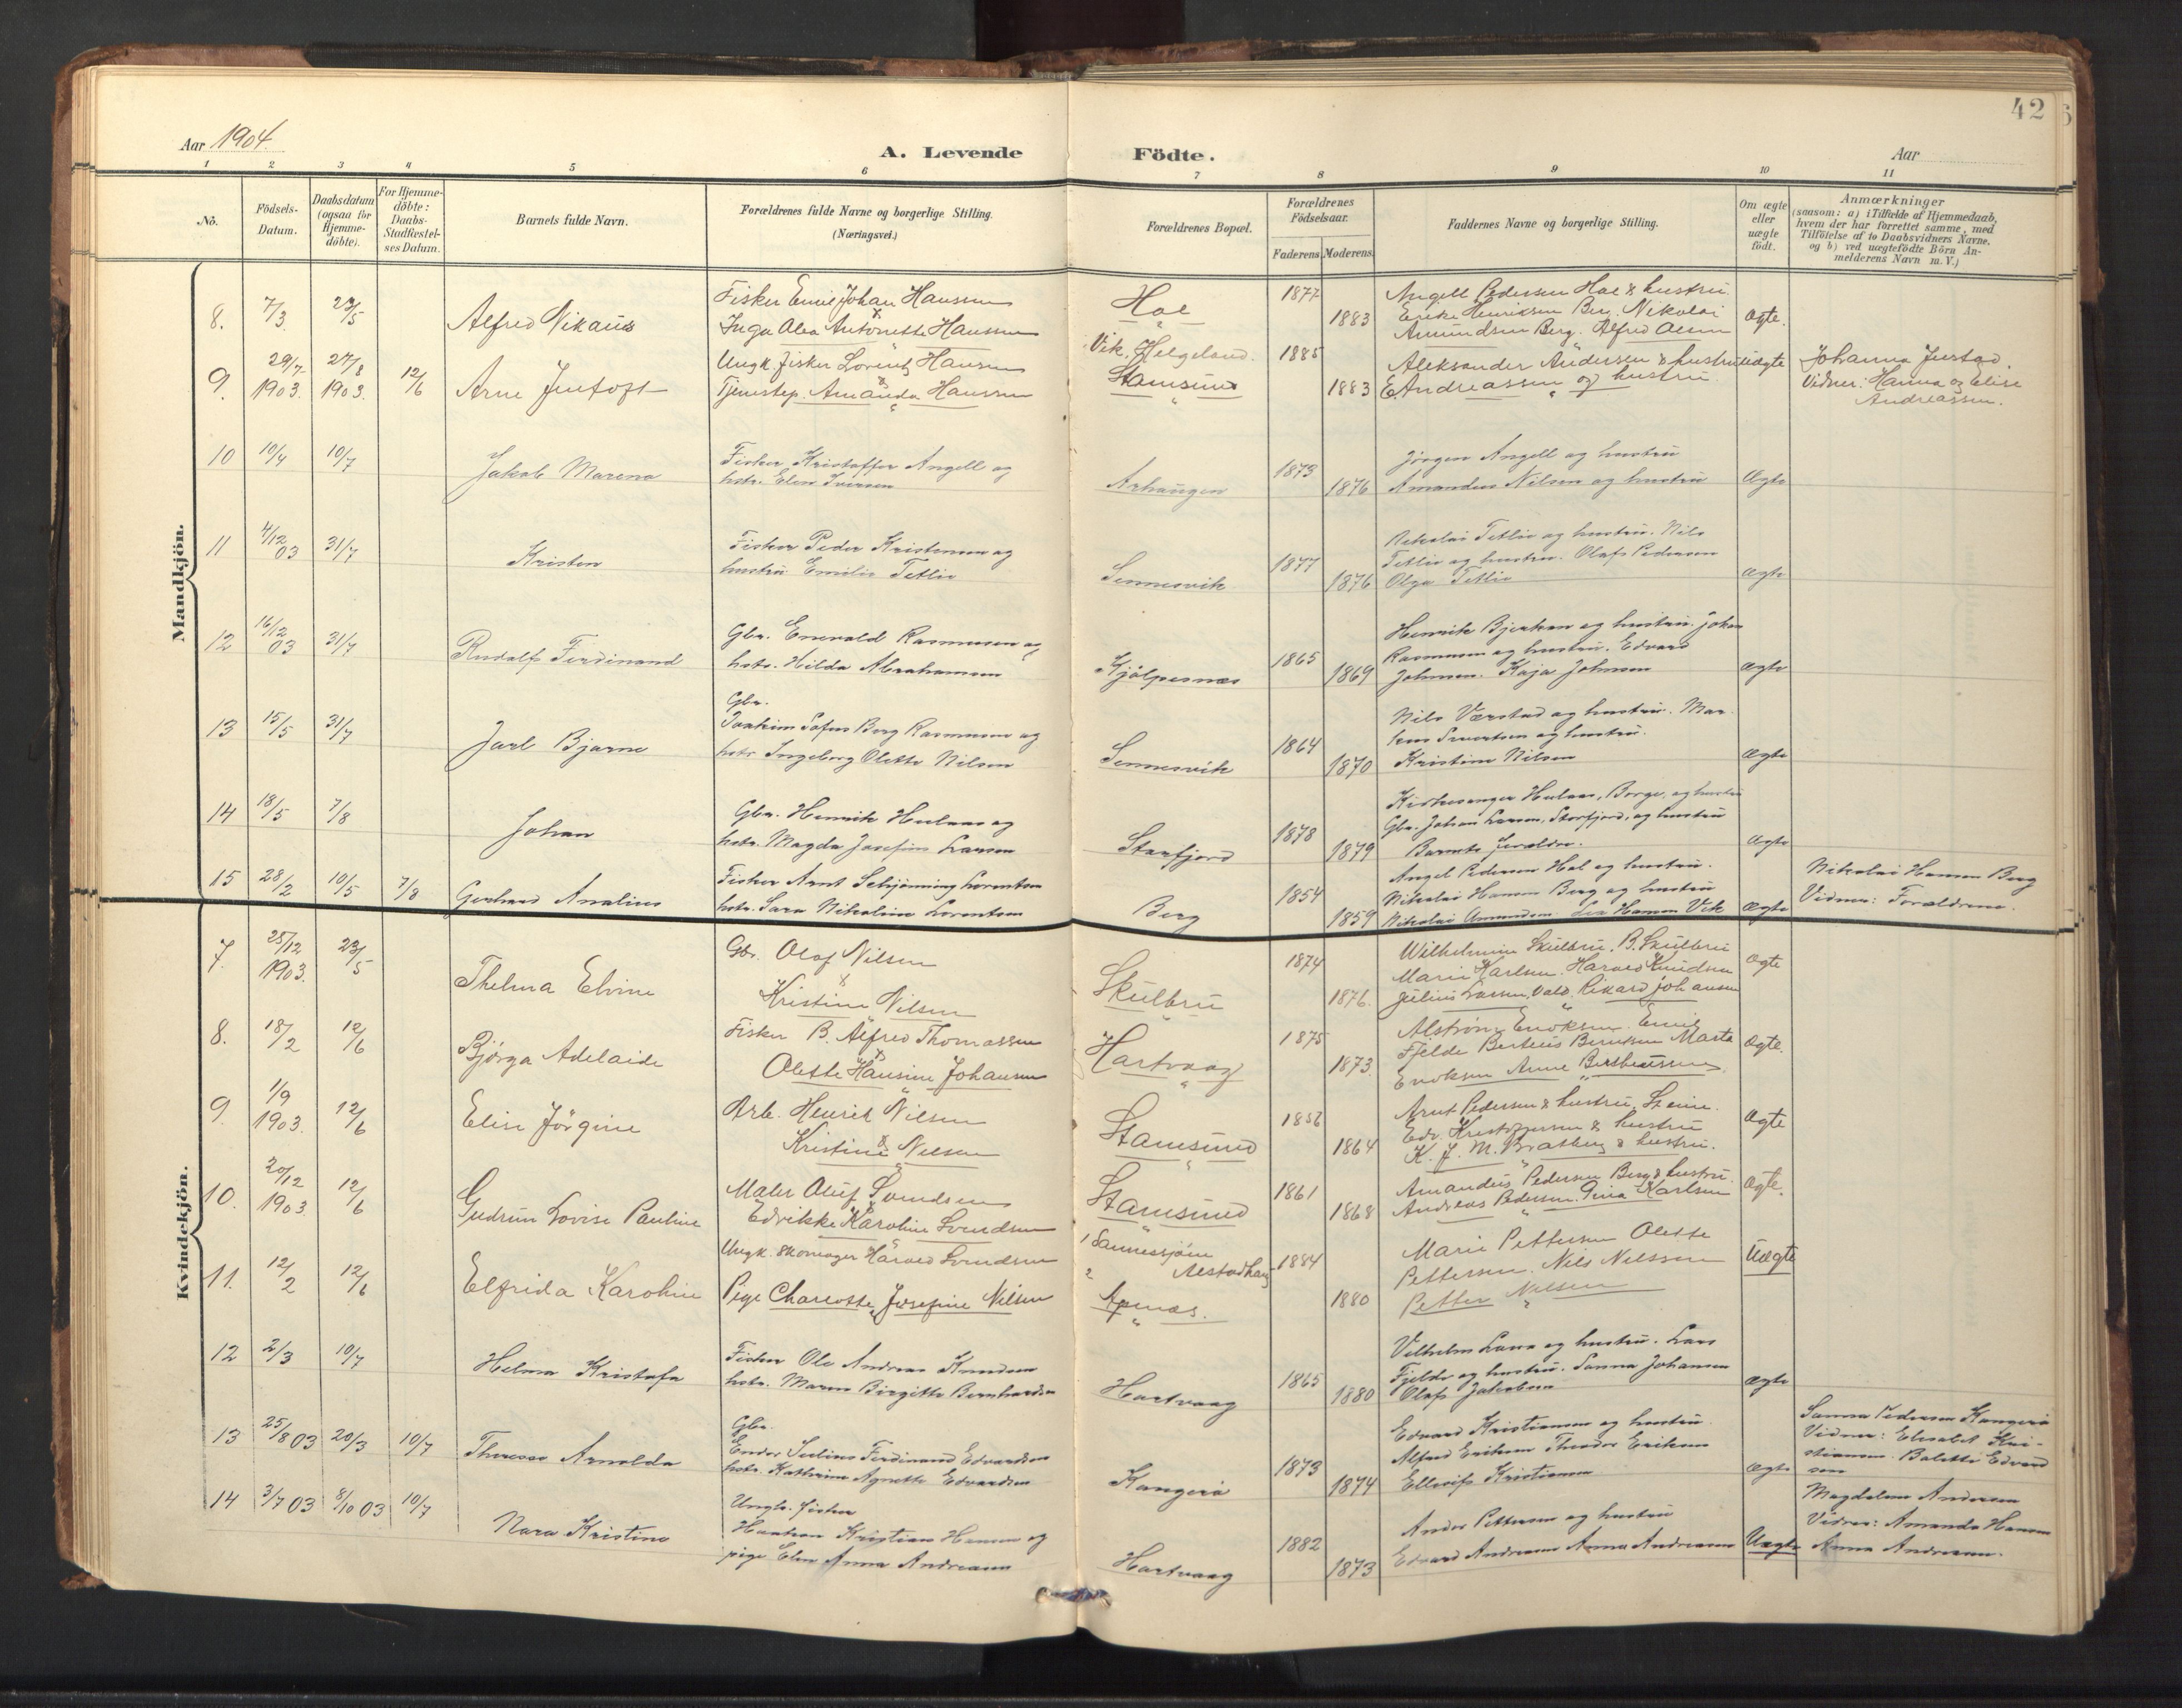 42
Aar 1904.
A. Levende Födte.
Aar
1 2 3 4 5 6 7 8 9 10 11
Nö.
Födsels-Datum.
Daabsdatum (ogsaa för Hjemme-döbte).
For Hjemme-döbte: Daabs-Stadfæstel-ses Datum.
Barnets fulde Navn.
Forældrenes fulde Navne og borgerlige Stilling.
(Næringsvei.)
Forældrenes Bopæl.
Forældrenes Födselsaar.
Faderens Moderens
Faddernes Navne og borgerlige Stilling.
Om ægte eller uægte födt.
Anmærkninger
(saasom: a) i Tilfælde af Hjemmedaab, hvem der har forrettet samme, med Tilföielse af to Daabsvidners Navne, og b) ved uægtefödte Börn An-melderens Navn m. V.)
Mandkjön.
8. 7/3 23/5 Alfred Nikaus
Fisker Emil Johan Hanssen
Inga Alea Antonette Hanssen
Hol
1877 1883
Angell Pedersen Hol & hustru.
Erike Henriksen Berg. Nikolai
Amundsen Berg. Alfred Olsen
Ægte.
9. 29/7 1903. 27/8 1903. 12/6 Arne Jentoft
Ungk. fisker Lorentz Hansen
Tjenestep. Amanda Hanssen
Vik, Helgeland.
Stamsund
1885 1883
Aleksander Andersen & hustru
E Andreassen og hustru
uægte
Johanna Justad
Vidner: Hanna og Elise
Andreassen.
10 10/4 10/7 Jakob Mareno
Fisker Kristoffer Angell og
hstr. Elen Iversen
Arhaugen
1873 1876
Jörgen Angell og hustru
Amandus Nilsen og hustru
Ægte
11 4/12 03 31/7 Kristen
Fisker Peder Kristensen og
hustru Emilie Tetlie
Sennesvik
1877 1876
Nikolai Tetlie og hustru. Nils
Tetlie og hustru. Olaf Pedersen
Olga Tetlie
Ægte
12 16/12 03 31/7 Rudolf Ferdinand
Gbr. Enevald Rasmussen og
hstr. Hilda Abrahamsen
Kjölpesnæs
1865 1869
Henrik Bjerkan og hustru. Johan
Rasmussen og hustru. Edvard
Johnsen. Kaja Johnsen
Ægte
13 15/5 31/7 Jarl Bjarne
Gbr.
Joakim Sofus Berg Rasmussen og
hstr Ingeborg Olette Nilsen
Sennesvik
1864 1870
Nils Værstad og hustru. Mar-
Sivertsen og hustru.
Kristine Nilsen
Ægte
14 18/5 7/8 Johan
Gbr. Henrik Hulaas og
hstr. Magda Josefine Larsen
Storfjord
1878 1879
Kirkesanger Hulaas, Borge, og hustru
Gbr. Johan Larsen, Storfjord, og hustru
Barnets forældre.
Ægte
15 28/2 10/5 7/8 Gerhard Analius
Fisker Arnt Schjönning Lorentsen
hstr. Sara Nikoline Lorentsen
Berg
1854 1859
Angel Pedersen Hol og hustru.
Nikolai Hansen Berg og hustru
Nikolai Amundsen Hansen Vik
Ægte
Nikolai Hansen Berg
Vidner: Forældrene.
Kvindekjön.
7. 25/12 1903. 23/5 Thelma Elvine
Gbr. Olaf Nilsen
Kristine Nilsen
Skulbru
1874 1876.
Wilhelmine Skulbru. B. Skulbru
Marie Karlsen. Harald Knudsen
Julius Larsen, Vold. Rikard Johansen
Ægte
8. 18/2 12/6 Bjørga Adelaide
Fisker B. Alfred Thomassen
Olette Hansine Johansen
Hartvaag
1875 1873.
Alstrøn Enoksen. Emil
Fjelde Berteus Berntsen Marta
Enoksen Anne Bertheussen
Ægte.
9. 1/9 1903. 12/6 Elise Jörgine
Arb. Henrik Nilsen
Kristine Nilsen
Stamsund
1856 1864
Arnt Pedersen & hustru, Steine.
Edv. Kristoffersen & hustru
K. J. M. Bratberg & hustru.
Ægte
10. 20/12 1903. 12/6 Gudrun Lovise Pauline
Maler Oluf Svendsen
Edvikke Karoline Svendsen
Stamsund
1861 1868
Amandus Pedersen Berg & hustru.
Andreas Pedersen. Gina Karlsen
Ægte.
11. 12/2 12/6 Elfrida Karoline
Ungk. Skomager Harald Svendsen
Pige Charlotte Josefine Nilsen
1 Sannessjøen
Alstadhaug
2 Apnæs.
1884 1880
Marie Pettersen Olette
Pettersen. Nils Nilssen
Petter Nilsen
Uægte
12 2/3 10/7 Helma Kristofa
Fisker Ole Andreas Knudsen
hstr. Maren Birgitte Bernhardsen
Hartvaag
1865 1880
Vilhelm Larsen og hustru. Lars
Fjelde og hustru. Sanna Johansen
Olaf Jakobsen
Ægte
13 25/8 03 20/3 10/7 Theresse Arnolda
Gbr.
Endor Julius Ferdinand Edvardsen
hstr. Kathrine Agnette Edvardsen
Kangerö
1873 1874
Edvard Kristiansen og hustru
Alfred Eriksen Theodor Eriksen
Ellseif Kristiansen
Ægte
Sanna Pedersen Kangerö
Vidner: Elisabet Kri-
stiansen. Bolette Edvard
sen
14 3/7 03 8/10 03 10/7 Nora Kristine
Ungk. fisker
Haakon Kristian Hansen og
pige Elen Anna Andreasen
Hartvaag
1882 1873
Andor Pettersen og hustru
Edvard Andreasen Anna Andreasen
Uægte
Magdalena Andersen
Vidner: Amanda Hansen
Anna Andreasen.